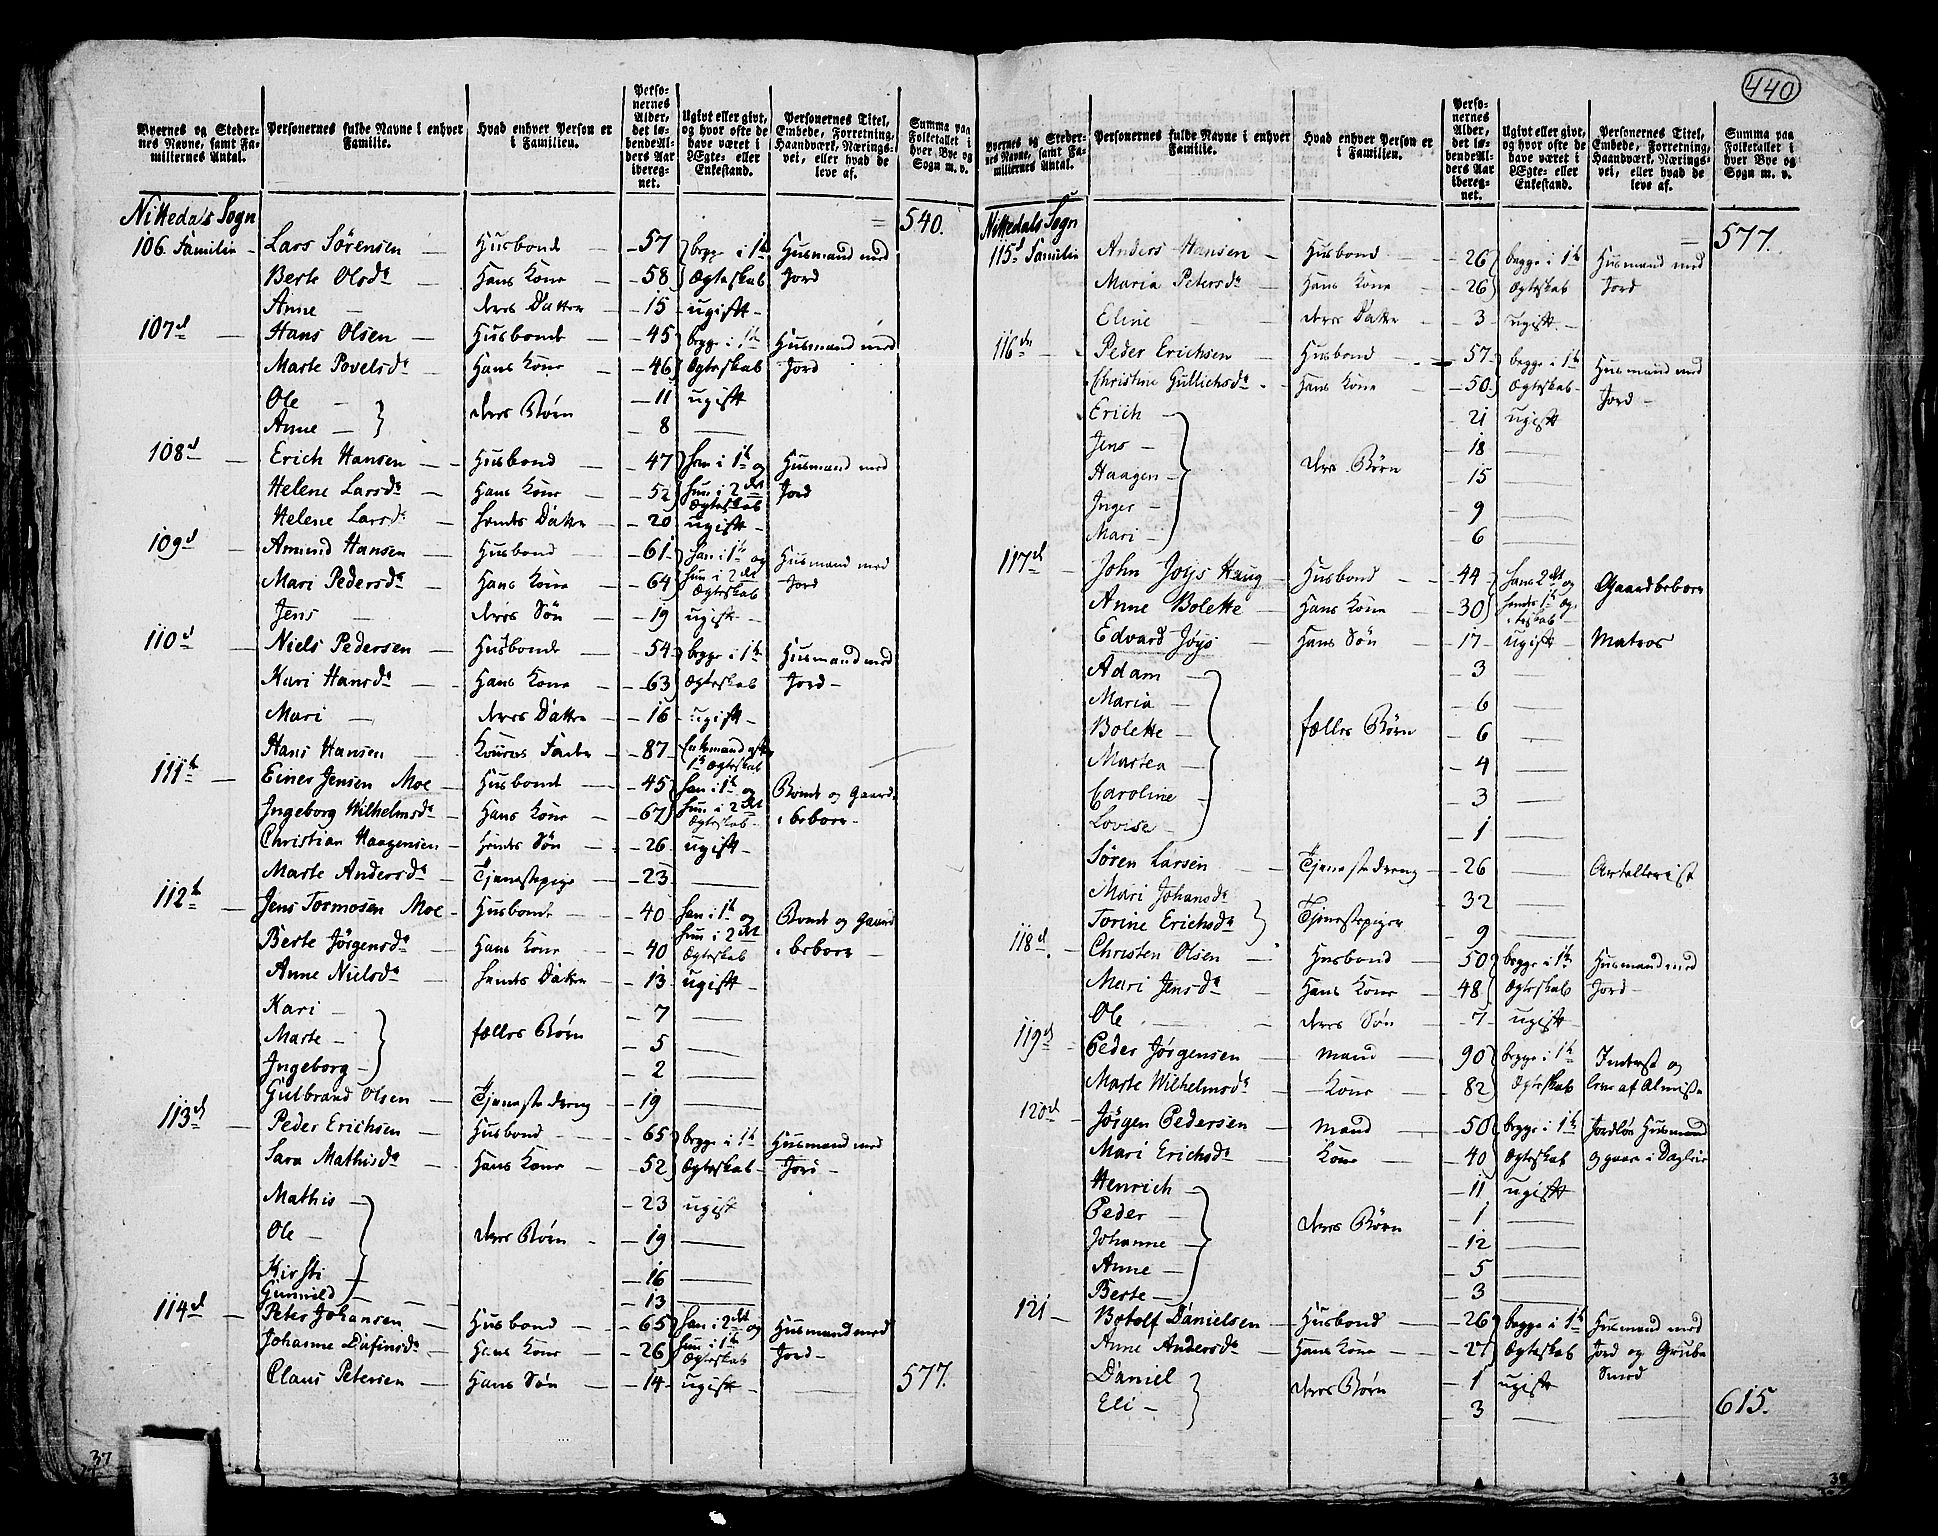 440
Byernes og Stedernes Navne, samt Familiernes Antal.
Personernes fulde Navne i enhver Familie.
Hvad enhver Person er i Familien.
Personernes Alder, det løbende Alders Aar iberegnet.
Ugivt eller givt, og hvor ofte de have været i Ægte- eller Enkestand.
Personernes Titel, Embede, Forretning, Haandværk, Næringsvei, eller hvad de leve af.
Summa paa Folketallet i hver Bye og Sogn m. v.
Nittedals Sogn = 540.
106. Familie Lars Sørensen Husbonde 57 begge i 1te Husmand med
Berte Olsdr Hans Kone 58 Ægteskab Jord
Anne deres Datter 15 ugift
107d Hans Olsen Husbonde 45 begge i 1te Husmand med
Marte Povelsdr Hans Kone 46 Ægteskab Jord
Ole 11 ugift
Anne deres Børn 8
108d Erich Hansen Husbond 47 han i 1te og Husmand med
Helene Larsdr Hans Kone 52 hun i 2det Ægteskab Jord
Helene Larsdr hendes Datter 20 ugift
109d Amund Hansen Husbond 61 han i 1te og Husmand med
Mari Pedersdr Hans Kone 64 hun i 2det Ægteskab Jord
Jens deres Søn 19 ugift
110d Niels Pedersen Husbonde 54 begge i 1te Husmand med
Kari Hansdr Hans Kone 63 Ægteskab Jord
Mari deres Datter 16 ugift
Hans Hansen Konens Fader 87 Enkemand efter 1te Ægteskab
111te Einer Jensen Moe Husbonde 45 han i 1te og Bonde og Gaard
Ingeborg Wilhelmsdr Hans Kone 67 hun i 2det Ægteskab beboer
Christian Haagensen hendes Søn 26 ugift
Marte Andersdr Tjenestepige 23
112te Jens Tormosen Moe Husbonde 40 han i 1te og Bonde og Gaard
Berte Jørgensdr Hans Kone 40 hun i 2det Ægteskab beboer
Anne Nielsdr hendes Datter 13 ugift
Kari 7
Marte fælles Børn 5
Ingeborg 2
Gulbrand Olsen Tjenestedreng 19
113d Peder Erichsen Husbond 65 begge i 1te Husmand med
Sara Mathisdr Hans Kone 52 Ægteskab Jord
Mathis 23 ugift
Ole deres Børn 19
Kirsti 16
Gunnild 13
114d Peter Johansen Husbond 65 han i 2det og Husmand med
Johanne Dafinsdr Hans Kone 26 hun i 1te Ægteskab Jord
Claus Petersen Hans Søn 14 ugift 577.
37
Byernes og Stedernes Navne, samt Familiernes Antal.
Personernes fulde Navne i enhver Familie.
Hvad enhver Person er i Familien.
Personernes Alder, det løbende Alders Aar iberegnet.
Ugivt eller givt, og hvor ofte de have været i Ægte- eller Enkestand.
Personernes Titel, Embede, Forretning, Haandværk, Næringsvei, eller hvad de leve af.
Summa paa Folketallet i hver Bye og Sogn m. v.
Nittedals Sogn = 577.
115d Familie Anders Hansen Husbond 26 begge i 1te Husmand med
Maria Petersdr Hans Kone 26 Ægteskab Jord
Eline deres Datter 3 ugift
116de Peder Erichsen Husbond 57 begge i 1te Husmand med
Christine Gullichsdr Hans Kone 50 Ægteskab Jord
Erich 21 ugift
Jens 18
Haagen deres Børn 15
Inger 9
Mari 6
117d John Joys Haug Husbond 44 hans 2det og Gaardbeboer
Anne Bolette Hans Kone 30 hendes 1te Ægteskab
Edvard Joys Hans Søn 17 ugift Matros
Adam 3
Maria 6
Bolette fælles Børn 6
Martea 4
Caroline 3
Lovise 1
Søren Larsen Tjenestedreng 26 Artellerist
Mari Johansdr 32
Torine Erichsdr Tjenestepiger 9
118d Christen Olsen Husbond 50 begge i 1te Husmand med
Mari Jensdr Hans Kone 48 Ægteskab Jord
Ole deres Søn 7 ugift
119d Peder Jørgensen Mand 90 begge i 1te Inderst og
Marte Wilhelmsdr Kone 82 Ægteskab lever af Almisse
120d Jørgen Pedersen Mand 50 begge i 1te Jordløs Husmand
Mari Erichsdr Kone 40 Ægteskab og gaar i Dagleie
Henrich 11 ugift
Peder deres Børn 1
Johanne 12
Anne 5
Berte 3
121 Botolf Danielsen Husbond 26 begge i 1te Husmand med
Anne Andersdr Hans Kone 27 Ægteskab Jord og Grube
Daniel deres Børn 1 ugift Smed
Eli 3 615.
38